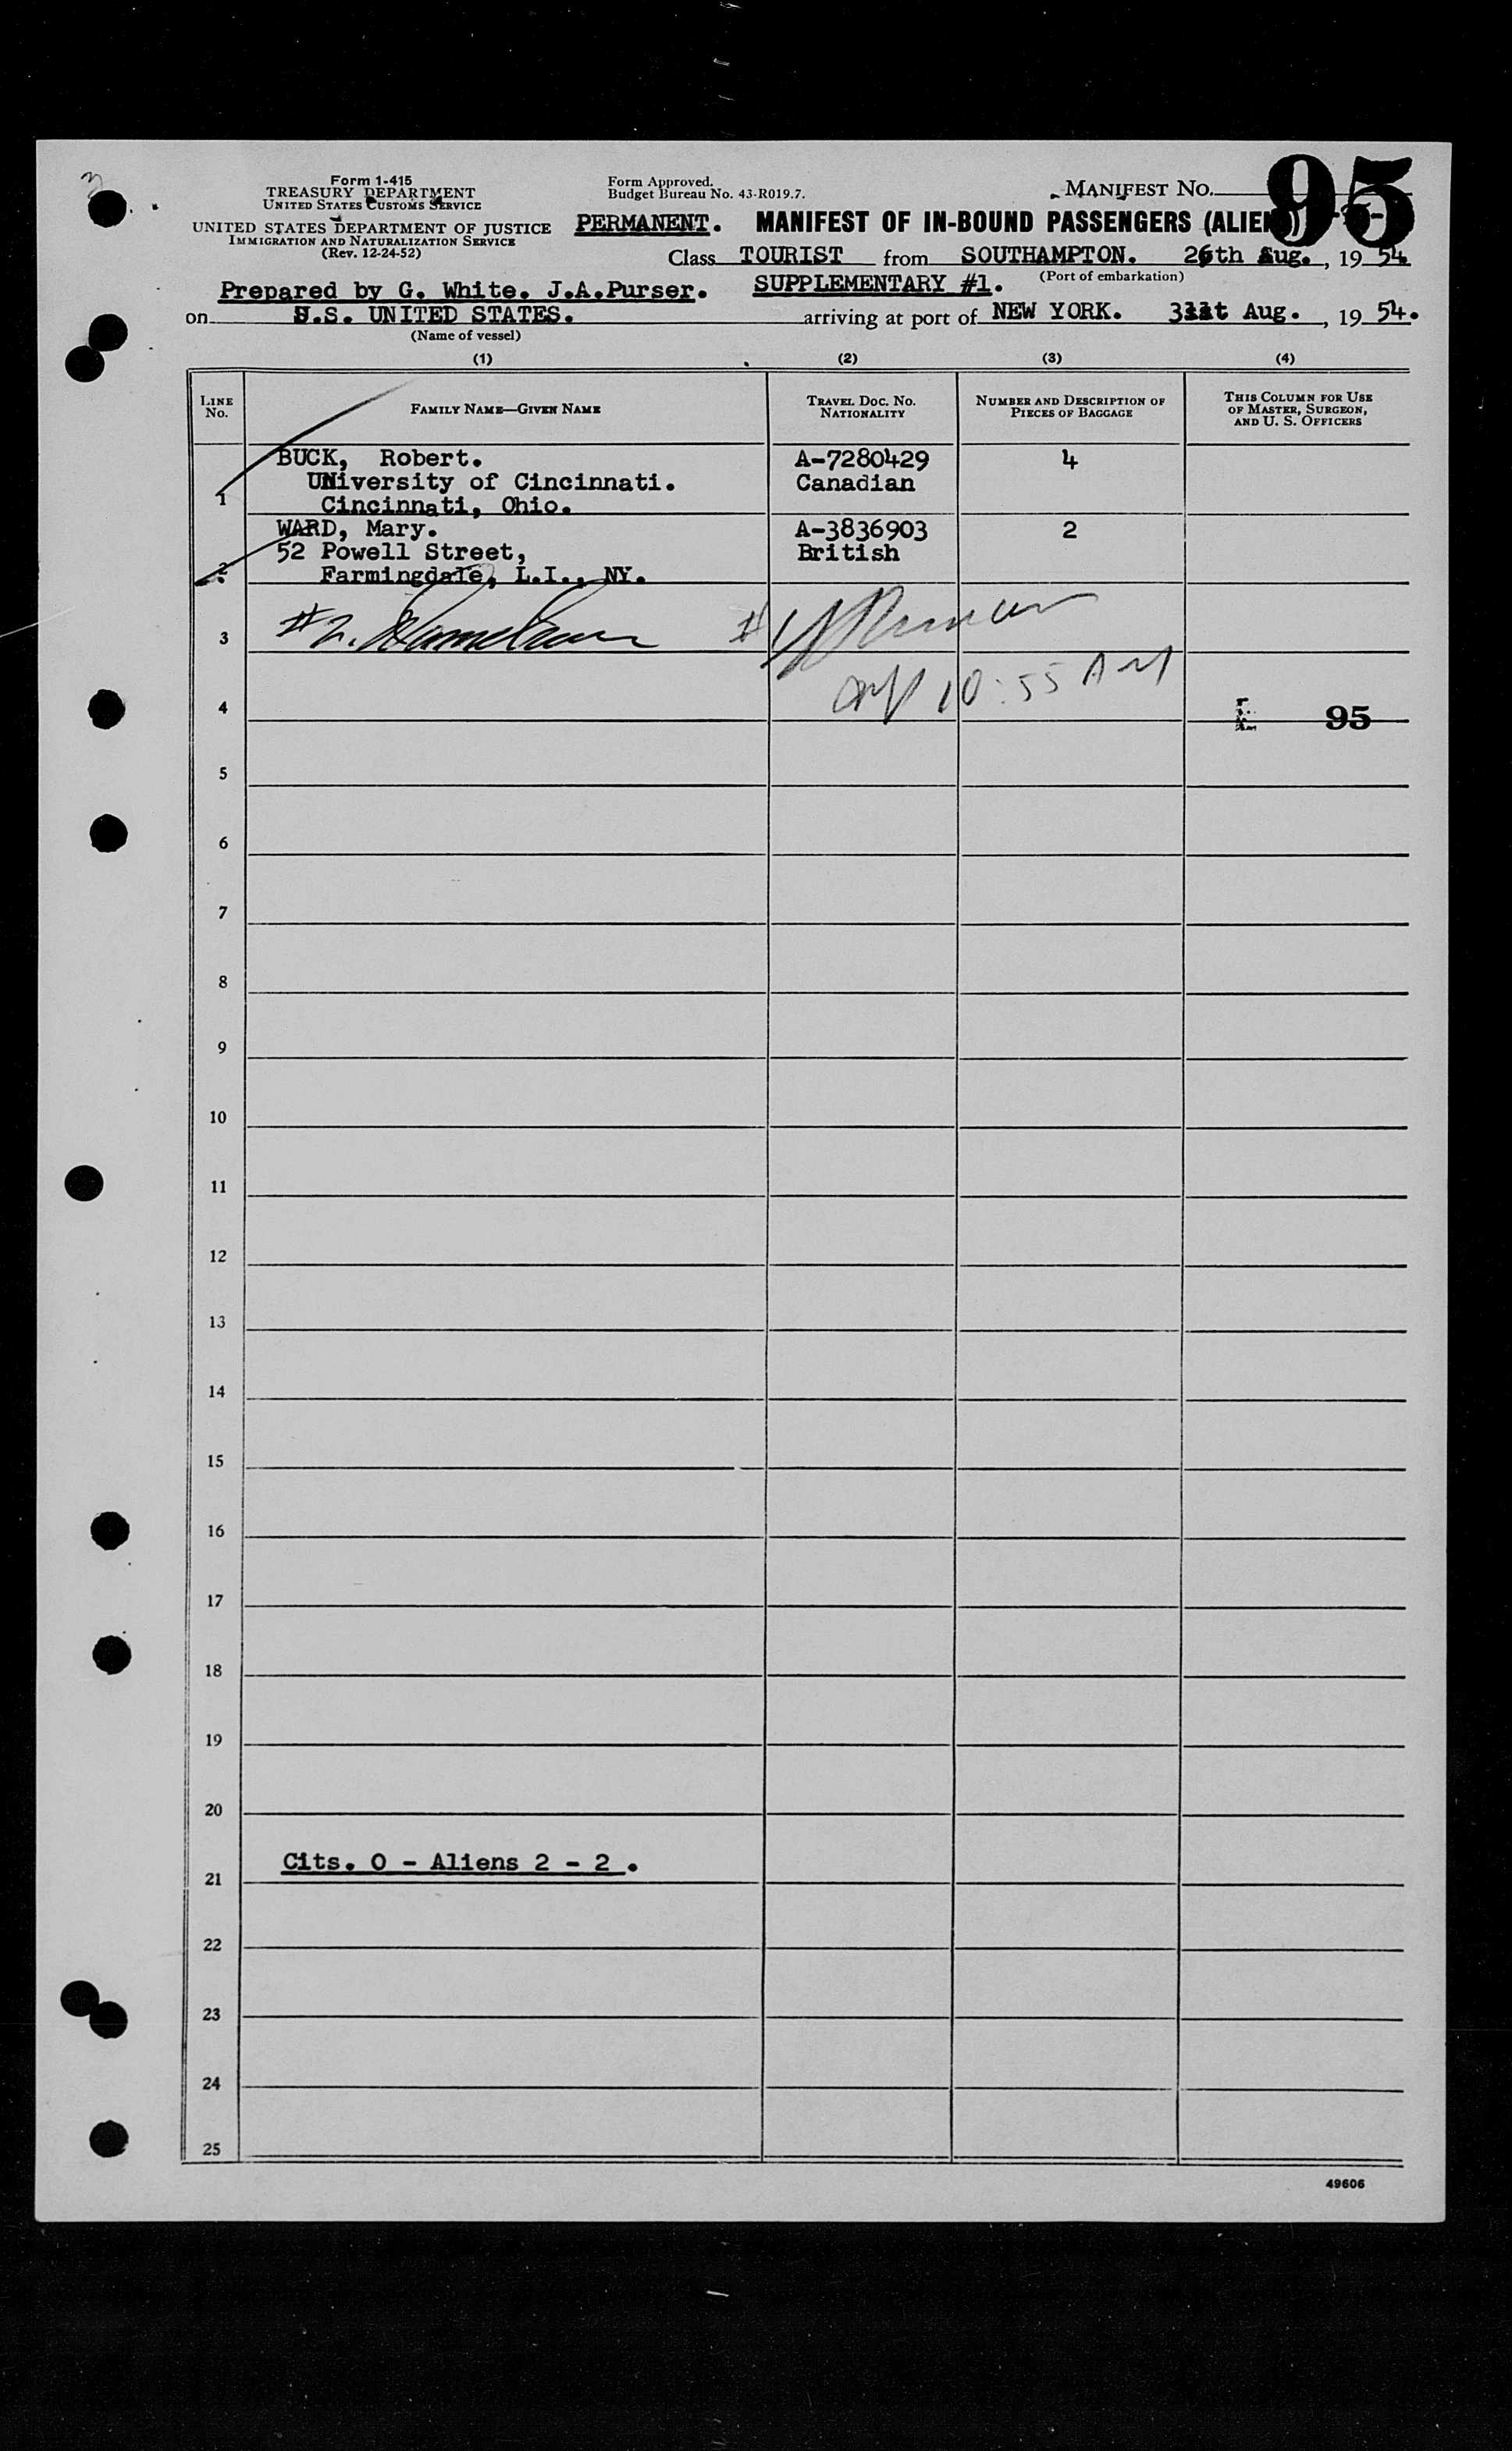 Form 1-415
TREASURY DEPARTMENT
UNITED STATES CUSTOMS SERVICE
UNITED STATES DEPARTMENT OF JUSTICE
IMMIGRATION AND NATURALIZATION SERVICE
(Rev. 12-24-52)
Form Approved.
Budget Bureau No. 43-R019.7.
MANIFEST No. 95
PERMANENT. MANIFEST OF IN-BOUND PASSENGERS (ALIENS)
Class TOURIST from SOUTHAMPTON. 26th Aug., 19 54
(Port of embarkation)
Prepared by G. White. J.A.Purser. SUPPLEMENTARY #1.
on S.S. UNITED STATES. arriving at port of NEW YORK. 31st Aug., 19 54.
(Name of vessel)
(1) (2) (3) (4)
LINE No. FAMILY NAME—GIVEN NAME TRAVEL DOC. NO. NATIONALITY NUMBER AND DESCRIPTION OF PIECES OF BAGGAGE THIS COLUMN FOR USE OF MASTER, SURGEON, AND U. S. OFFICERS
BUCK, Robert. A-7280429 4
UNiversity of Cincinnati. Canadian
1 Cincinnati, Ohio.
WARD, Mary. A-3836903 2
52 Powell Street, British
2 Farmingdale, L.I., NY.
3
10:55 AM
4 95
5
6
7
8
9
10
11
12
13
14
15
16
17
18
19
20
Cits. 0 - Aliens 2 - 2 .
21
22
23
24
25
49606